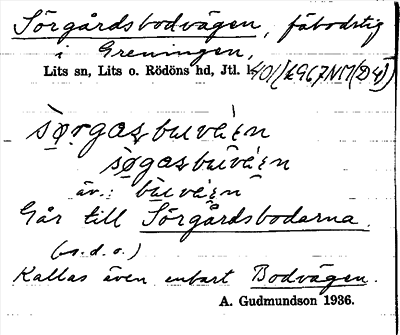 Sörgårdsbodvägen, fäbodstig
i Greningen,
Lits sn, Lits o. Rödöns hd, Jtl. l.
sørgasbuvei̯en
søgasbuvei̯en
äv.: buvei̯en
Går till Sörgårdsbodarna.
(s.d.o.)
Kallas även enbart Bodvägen.
A. Gudmundson 1936.